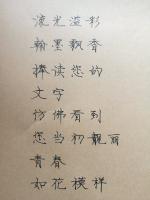 流光溢彩
翰墨飘香
捧读您的
文字
仿佛看到
您当初靓丽
青春
如花模样